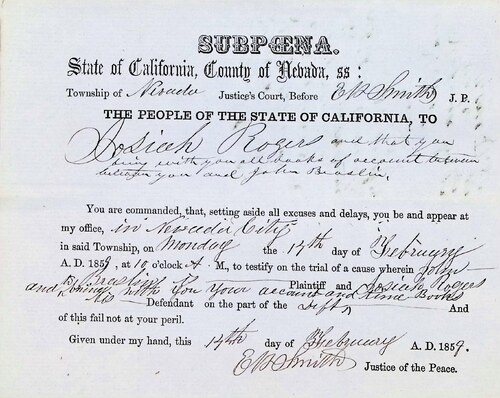 SUBPŒNA.
State of California, County of Nevada, ss:
Township of Nevada Justice's Court, Before E W Smith J. P.
THE PEOPLE OF THE STATE OF CALIFORNIA, TO
Josiah Rogers and that you
bring with you all books of account between
between you and John
You are commanded, that, setting aside all excuses and delays, you be and appear at
my office, in Nevada City
in said Township, on Monday the 17th day of February
A. D. 1859, at 10 o'clock A. M., to testify on the trial of a cause wherein John
Plaintiff and Josiah Rogers
and bring with you your account and time Books
Defendant on the part of the Deft And
of this fail not at your peril.
Given under my hand, this 14th day of February A. D. 1859.
E W Smith Justice of the Peace.